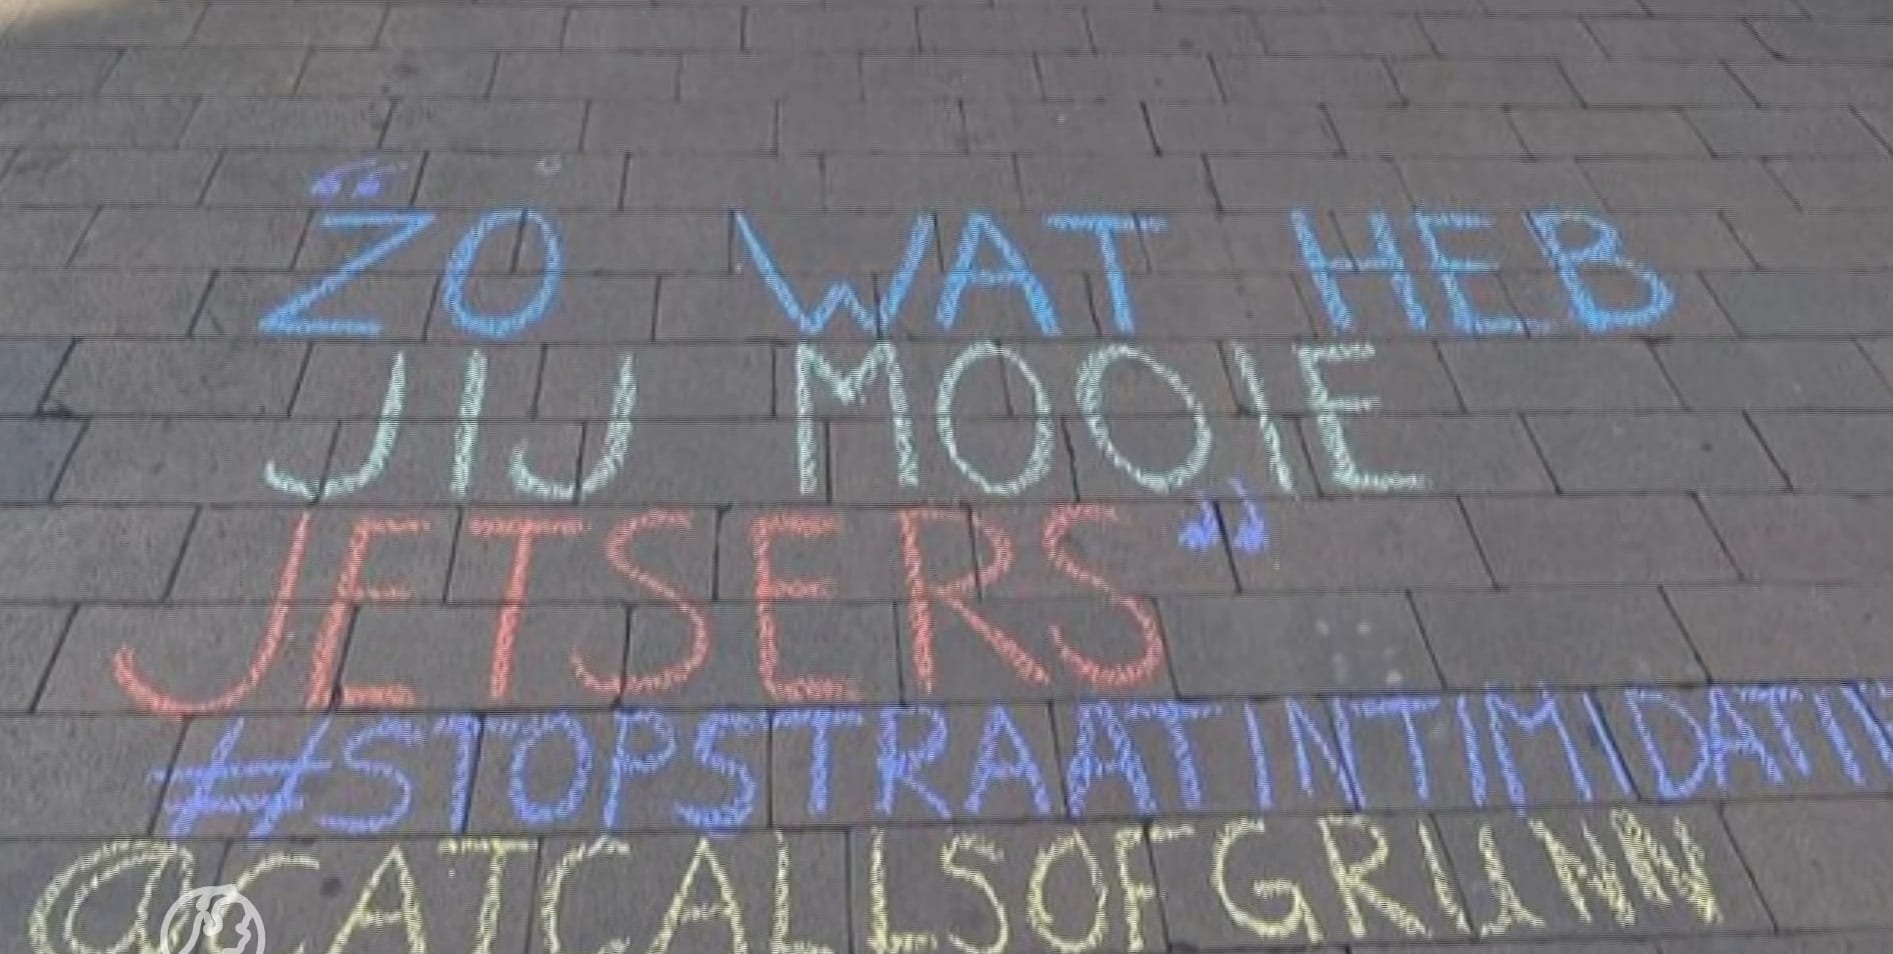 “ZO WAT HEB
JIJ MOOIE
JETSERS”
#STOPSTRAATINTIMIDATIE
@CATCALLSOFGRUNN